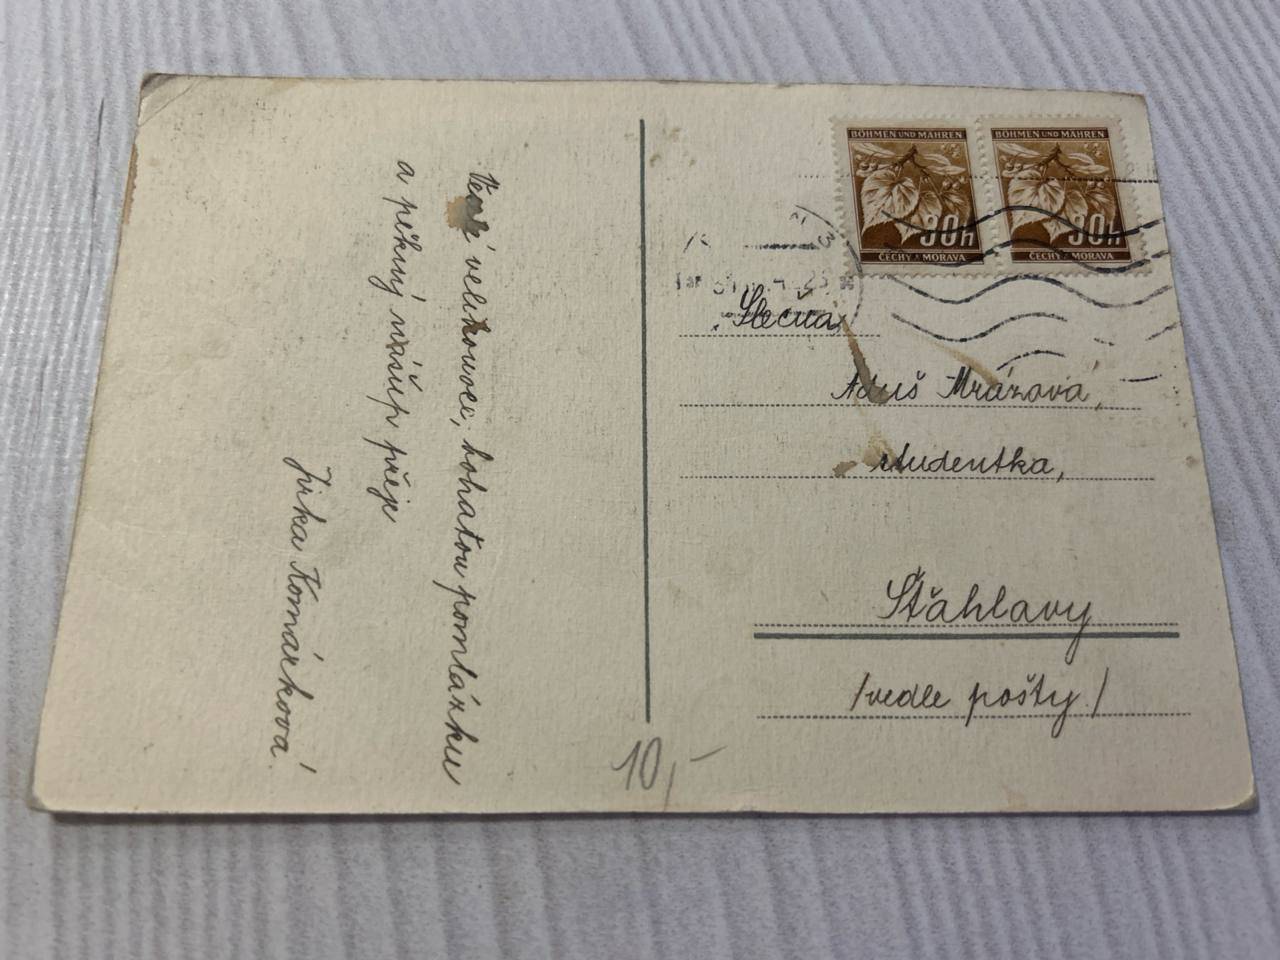 Veselé velikonoce, bohatou pomlázku
a pěkný nášup přeje
Jirka Komárková.
BÖHMEN UND MÄHREN
30h
ČECHY A MORAVA
BÖHMEN UND MÄHREN
30h
ČECHY A MORAVA
Slečna
Aduš Mrázová,
studentka,
Šťáhlavy
/vedle pošty./
10,-